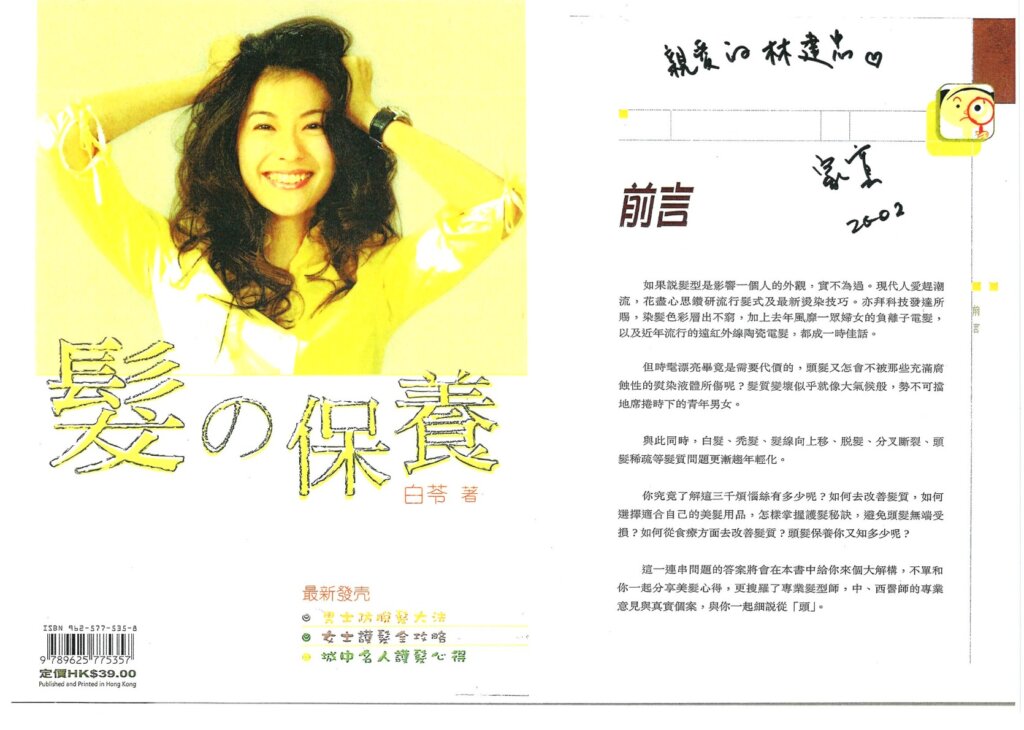 髮の保養
白苓 著
最新發売
男士防脫髮大法
女士護髮全攻略
城中名人護髮心得
ISBN 962-577-535-8
9 789625 775357
定價HK$39.00
Published and Printed in Hong Kong
親愛的林建忠♡
2002
前言
如果説髮型是影響一個人的外觀,實不為過。現代人愛趕潮
流,花盡心思鑽研流行髮式及最新燙染技巧。亦拜科技發達所
賜,染髮色彩層出不窮,加上去年風靡一眾婦女的負離子電髮,
以及近年流行的遠紅外線陶瓷電髮,都成一時佳話。
但時髦漂亮畢竟是需要代價的,頭髮又怎會不被那些充滿腐
蝕性的熨染液體所傷呢?髮質變壞似乎就像大氣候般,勢不可擋
地席捲時下的青年男女。
與此同時,白髮、禿髮、髮線向上移、脫髮、分叉斷裂、頭
髮稀疏等髮質問題更漸趨年輕化。
你究竟了解這三千煩惱絲有多少呢?如何去改善髮質,如何
選擇適合自己的美髮用品,怎樣掌握護髮秘訣,避免頭髮無端受
損?如何從食療方面去改善髮質?頭髮保養你又知多少呢?
這一連串問題的答案將會在本書中給你來個大解構,不單和
你一起分享美髮心得,更搜羅了專業髮型師,中、西醫師的專業
意見與真實個案,與你一起細説從「頭」。
前言